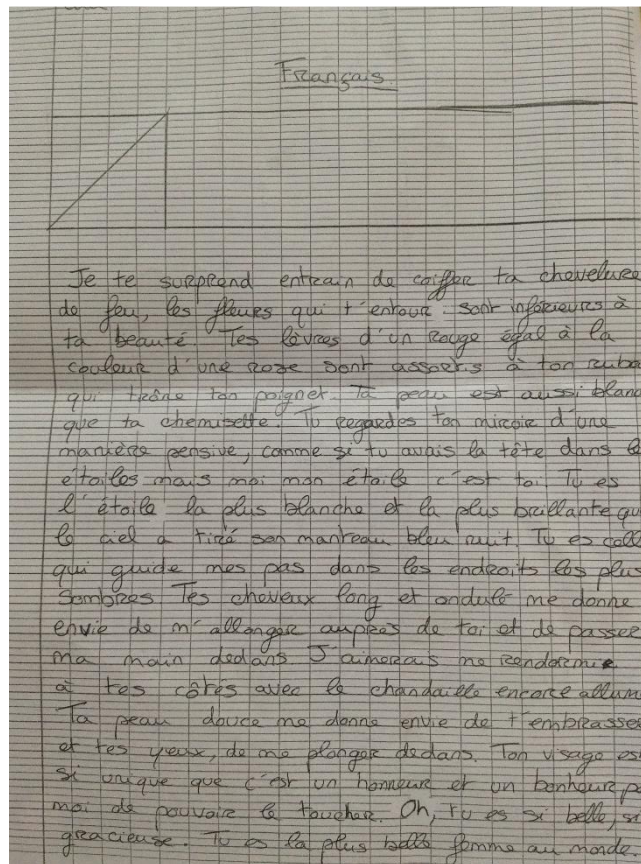 Français.
Je te surprend entrain de coiffer ta chevelure
de feu, les fleurs qui t'entour sont inférieurs à
ta beauté. Tes lèvres d'un rouge égal à la
couleur d'une roze sont assortis à ton ruba
qui trône ton poignet. Ta peau est aussi blanc
que ta chemisette. Tu regardes ton miroir d'une
manière pensive, comme si tu avais la tête dans le
étoiles mais moi mon étoile c'est toi. Tu es
l'étoile la plus blanche et la plus brillante qu
le ciel a tiré son manteau bleu nuit. Tu es cell
qui guide mes pas dans les endroits les plus
sombres Tes cheveux long et ondulé me donne
envie de m'allonger auprès de toi et de passer
ma main dedans J'aimerais me rendormir
à tes côtés avec le chandaille encore allum
Ta peau douce me donne envie de t'embrasser
et tes yeux, de me plonger dedans. Ton visage es
si unique que c'est un honneur et un bonheur p
moi de pouvoir le toucher. Oh, tu es si belle, si
gracieuse. Tu es la plus belle femme au monde.